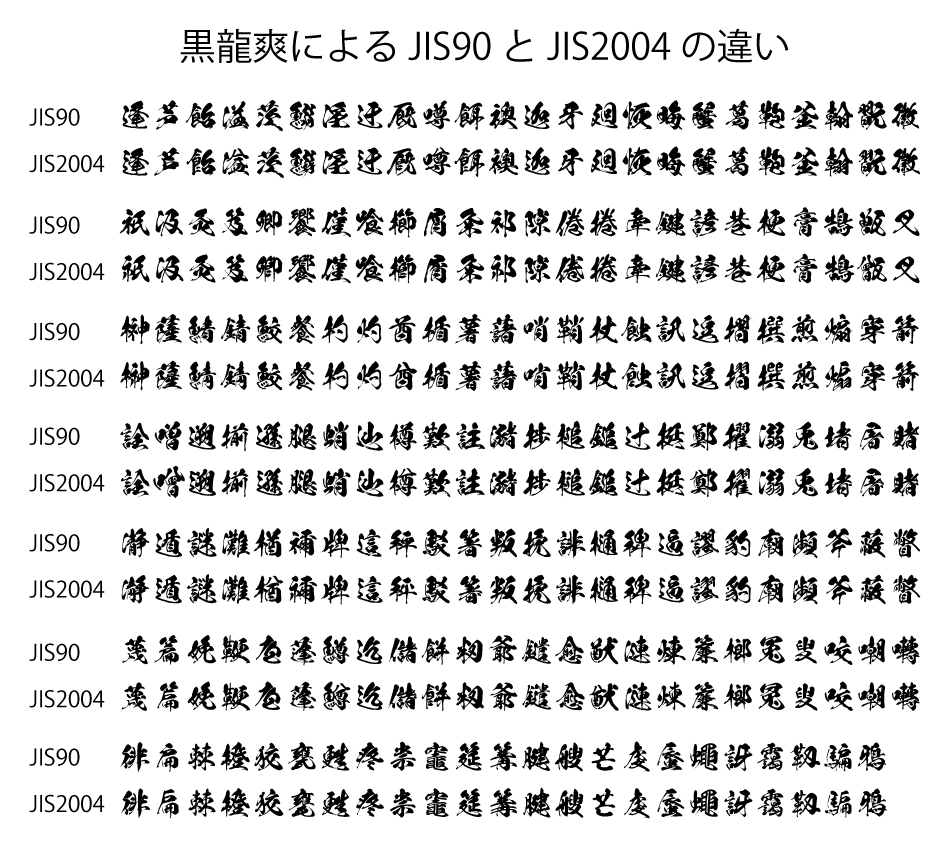 黒龍爽によるJIS90とJIS2004の違い
JIS90 逢芦飴溢茨鰯淫迂厩噂餌襖迦牙廻恢晦蟹葛鞄釜翰翫徽
JIS2004 逢芦飴溢茨鰯淫迂厩噂餌襖迦牙廻恢晦蟹葛鞄釜翰翫徽
JIS90 祇汲灸笈卿饗僅喰櫛屑粂祁隙倦捲牽鍵諺巷梗膏鵠甑叉
JIS2004 祇汲灸笈卿饗僅喰櫛屑粂祁隙倦捲牽鍵諺巷梗膏鵠甑叉
JIS90 榊薩鯖錆鮫餐杓灼酋楯薯藷哨鞘杖蝕訊逗摺撰煎煽穿箭
JIS2004 榊薩鯖錆鮫餐杓灼酋楯薯藷哨鞘杖蝕訊逗摺撰煎煽穿箭
JIS90 詮噌遡揃遜腿蛸辿樽歎註瀦捗槌鎚辻挺鄭擢溺兎堵屠賭
JIS2004 詮噌遡揃遜腿蛸辿樽歎註瀦捗槌鎚辻挺鄭擢溺兎堵屠賭
JIS90 瀞遁謎灘楢禰牌這秤駁箸叛挽誹樋稗逼謬豹廟瀕斧蔽瞥
JIS2004 瀞遁謎灘楢禰牌這秤駁箸叛挽誹樋稗逼謬豹廟瀕斧蔽瞥
JIS90 蔑篇娩鞭庖蓬鱒迄儲餅籾爺鑓愈猷漣煉簾榔冤叟咬嘲囀
JIS2004 蔑篇娩鞭庖蓬鱒迄儲餅籾爺鑓愈猷漣煉簾榔冤叟咬嘲囀
JIS90 徘扁棘橙狡甕甦疼祟竈筵篝腱艘芒虔蜃蠅訝靄靱騙鴉
JIS2004 徘扁棘橙狡甕甦疼祟竈筵篝腱艘芒虔蜃蠅訝靄靱騙鴉